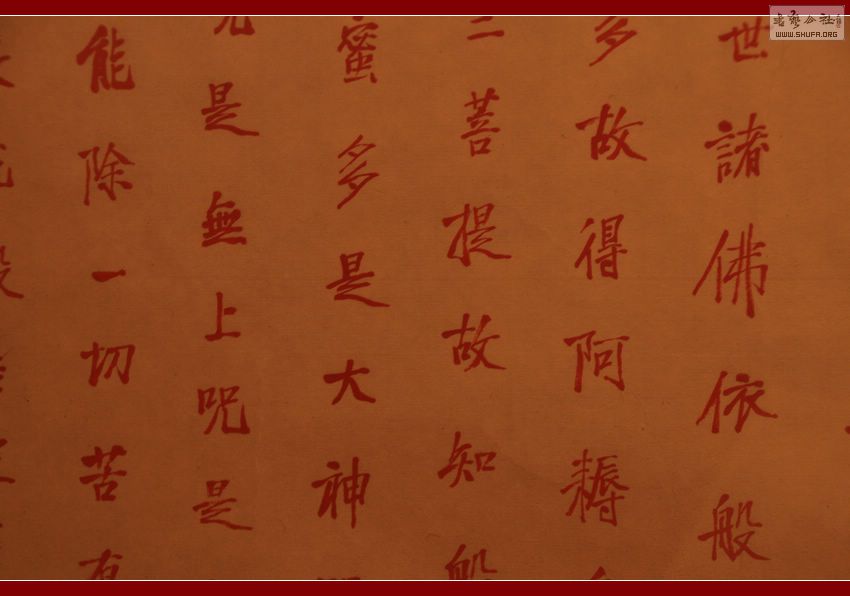 世諸佛依般
多故得阿耨
三菩提故知般
蜜多是大神
咒是無上呪是
能除一切苦
WWW.SHUFA.ORG